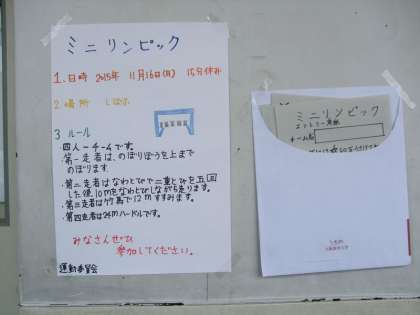 ミニリンピック
1.日時 2015年 11月16日(月) 15分休み
2 場所 しばふ
3 ルール
・四人一チームです。
・第一走者は、のぼりぼうを上まで
のぼります。
・第二走者はなわとびで二重とびを五回
した後、10mをなわとびしながら走ります。
・第三走者は竹馬で12mすすみます。
・第四走者は24mハードルです。
みなさんぜひ
参加してください。
運動委員会
ミニリンピック
エントリー用紙
チーム名